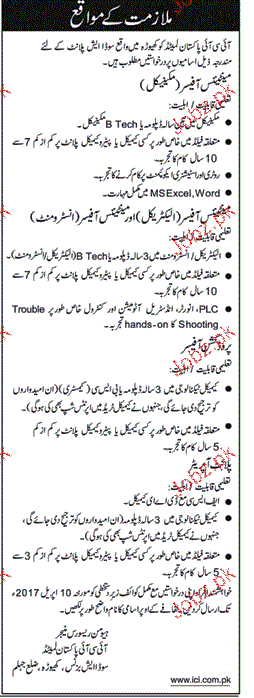 ملازمت کے مواقع
آئی سی آئی پاکستان لمیٹڈ کو کھیوڑہ میں واقع سوڈا ایش پلانٹ کے لئے
مندرجہ ذیل اسامیوں پر درخواستیں مطلوب ہیں۔
مینٹیننس آفیسر (مکینیکل)
تعلیمی قابلیت / اہلیت:
● مکینیکل میں تین سالہ ڈپلومہ یا B Tech مکینیکل۔
● متعلقہ فیلڈ میں خاص طور کسی کیمیکل یا پیٹرو کیمیکل پلانٹ پر کم از کم 7 سے
10 سال کام کا تجربہ۔
● روٹری اور اسٹیشنری ایکوپمنٹ پر کام کرنے کا تجربہ۔
● MS Excel, Word میں مکمل مہارت۔
مینٹیننس آفیسر (الیکٹریکل) اور مینٹیننس آفیسر (انسٹرومنٹ)
تعلیمی قابلیت / اہلیت:
● الیکٹریکل / انسٹرومنٹ میں 3 سالہ ڈپلومہ یا B Tech (الیکٹریکل / انسٹرومنٹ)۔
● متعلقہ فیلڈ میں خاص طور پر کسی کیمیکل یا پیٹرو کیمیکل پلانٹ پر کم از کم 7 سے
10 سال کام کا تجربہ۔
● PLC، انورٹر، انڈسٹریل آٹومیشن اور کنٹرول خاص طور پر Trouble
Shooting کا hands-on تجربہ۔
پروڈکشن آفیسر
تعلیمی قابلیت / اہلیت:
● کیمیکل ٹیکنالوجی میں 3 سالہ ڈپلومہ یا بی ایس سی (کیمسٹری) (ان امیدواروں
کو ترجیح دی جائے گی، جنہوں نے کیمیکل ٹریڈ میں اپرنٹس شپ بھی کی ہوگی)۔
● متعلقہ فیلڈ میں خاص طور پر کسی کیمیکل یا پیٹرو کیمیکل پلانٹ پر کم از کم
5 سال کام کا تجربہ۔
پلانٹ آپریٹر
تعلیمی قابلیت / اہلیت:
● ایف ایس سی مع ڈی اے ای کیمیکل۔
● کیمیکل ٹیکنالوجی میں 3 سالہ ڈپلومہ (ان امیدواروں کو ترجیح دی جائے گی،
جنہوں نے کیمیکل ٹریڈ میں اپرنٹس شپ بھی کی ہوگی)۔
● متعلقہ فیلڈ میں خاص طور پر کسی کیمیکل یا پیٹرو کیمیکل پلانٹ پر کم از کم 3 سے
5 سال کام کا تجربہ۔
خواہشمند افراد اپنی درخواستیں مع مکمل کوائف زیر دستخطی کو مورخہ 10 اپریل 2017ء
تک ارسال کر دیں۔ لفافے کے اوپر اسامی کا نام واضح طور پر لکھیں۔
ہیومن ریسورس منیجر
آئی سی آئی پاکستان لمیٹڈ
سوڈا ایش بزنس، کھیوڑہ، ضلع جہلم
www.ici.com.pk